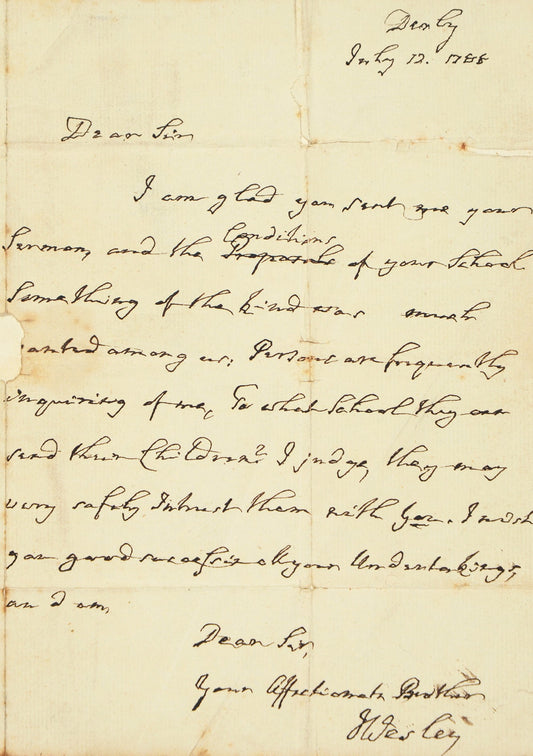 Derby
July 12. 1788
Dear Sir
I am glad you sent me your
Conditions
Sermon, and the Proposals of your School
Something of the kind was much
wanted among us; Persons are frequently
inquiring of me, To what School they can
send their Children? I judge, they may
very safely Intrust them with You. I wish
you good success in all your Undertakings,
and am,
Dear Sir,
Your Affectionate Brother
JWesley